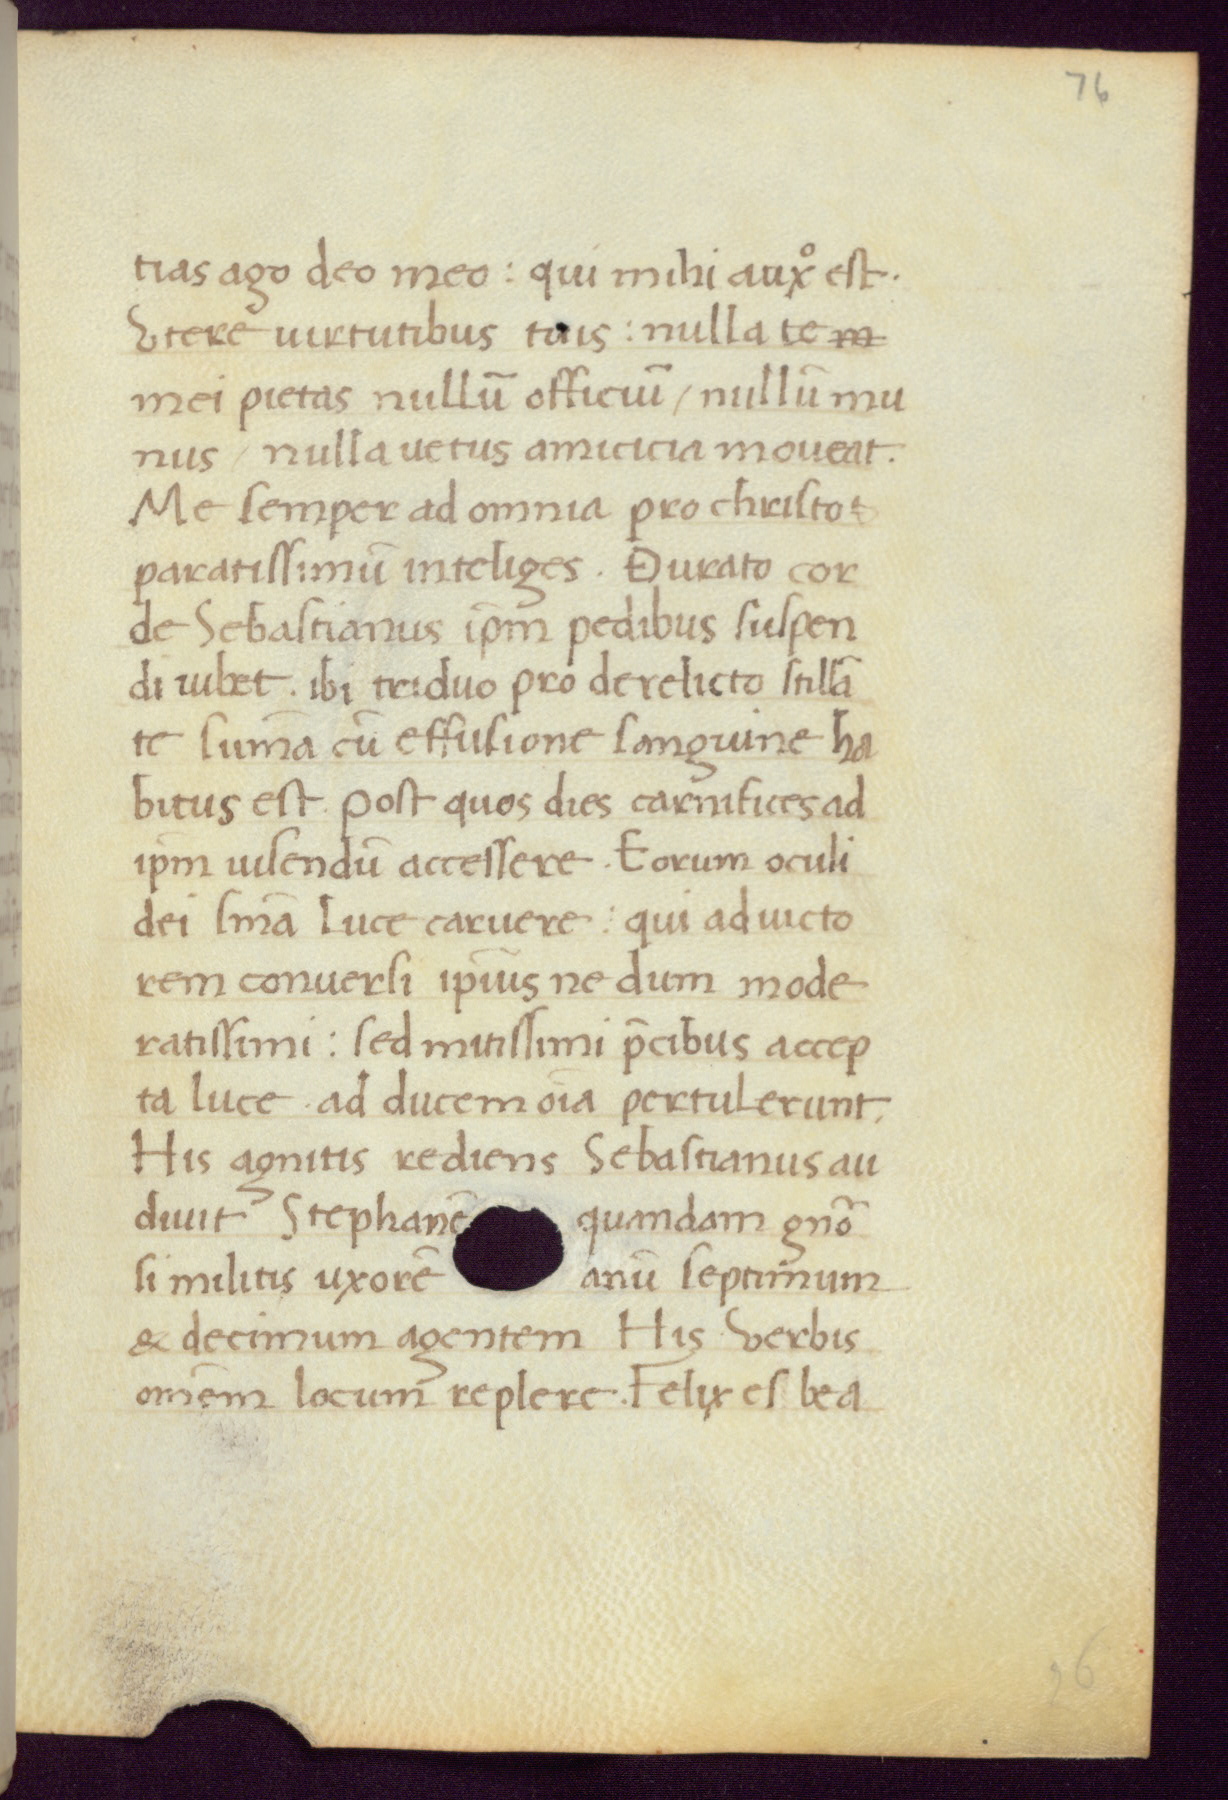 76
tias ago deo meo : qui mihi aux̊ est.
Vtere uirtutibus tuis : nulla te m
mei pietas nullū officiū / nullū mu
nus / nulla uetus amicicia moueat.
Me semper ad omnia pro christo
paratissimū inteliges . Durato cor
de Sebastianus ip̄m pedibus suspen
di iubet . ibi triduo pro derelicto stillā
te sum̄a cū effusione sanguine ha
bitus est . post quos dies carnifices ad
ip̄m uisendū accessere . Eorum oculi
dei sn̄ia luce caruere : qui ad uicto
rem conuersi ip̄ius ne dum mode
ratissimi : sed mitissimi p̄cibus accep
ta luce . ad ducem oīa pertulerunt.
His agnitis rediens Sebastianus au
diuit Stephanē quandam gnō
si militis uxorē anū septimum
& decimum agentem His uerbis
omēm locum replere . Felix es bea
96